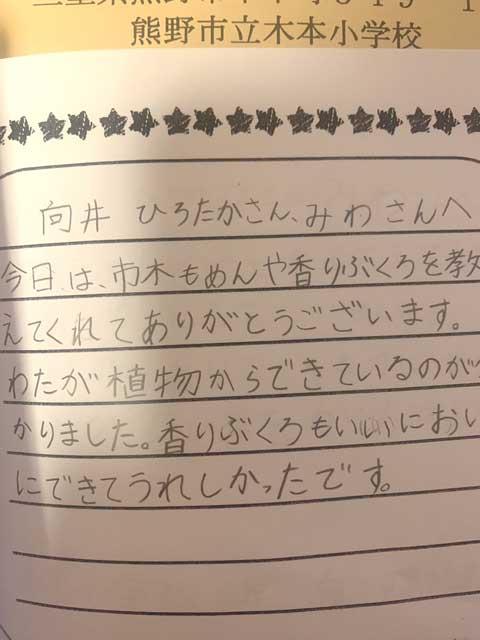 三重県熊野市木本町519-1
熊野市立木本小学校
向井 ひろたかさん、みわさんへ
今日は、市木もめんや香りぶくろを教
えてくれてありがとうございます。
わたが植物からできているのが分
かりました。香りぶくろもいいにおい
にできてうれしかったです。